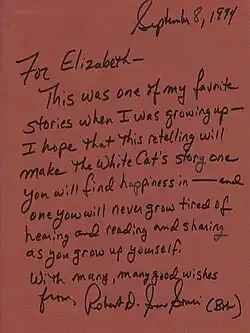 September 8, 1994
For Elizabeth—
This was one of my favorite
stories when I was growing up—
I hope that this retelling will
make The White Cat's story one
you will find happiness in — and
one you will never grow tired of
hearing and reading and sharing
as you grow up yourself.
With many, many good wishes
from, Robert D. San Souci (Bob)